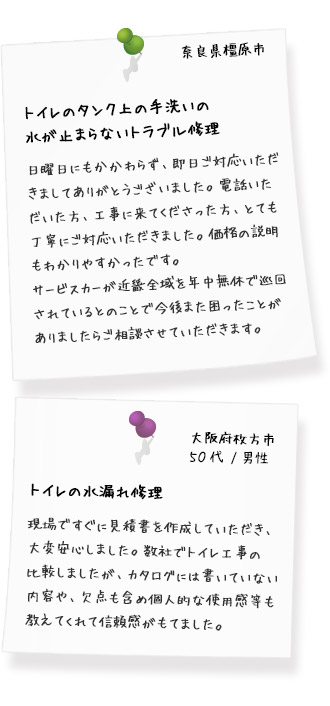 奈良県橿原市
トイレのタンク上の手洗いの
水が止まらないトラブル修理
日曜日にもかかわらず、即日ご対応いただ
きましてありがとうございました。電話いた
だいた方、工事に来てくださった方、とても
丁寧にご対応いただきました。価格の説明
もわかりやすかったです。
サービスカーが近畿全域を年中無休で巡回
されているとのことで今後また困ったことが
ありましたらご相談させていただきます。
大阪府枚方市
50代 / 男性
トイレの水漏れ修理
現場ですぐに見積書を作成していただき、
大変安心しました。数社でトイレ工事の
比較しましたが、カタログには書いていない
内容や、欠点も含め個人的な使用感等も
教えてくれて信頼感がもてました。